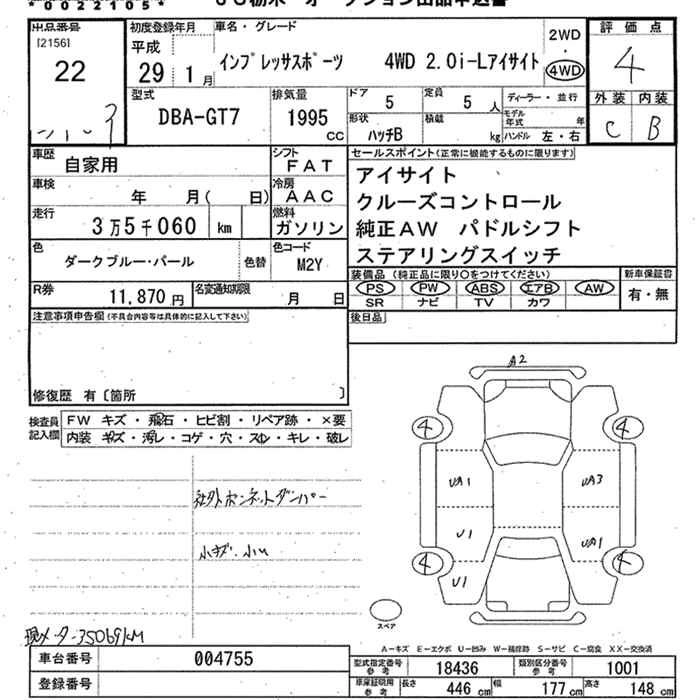 *0022105*
出品番号
[2156]
22
初度登録年月
平成
29年 1月
車名・グレード
インプレッサスポーツ 4WD 2.0i-Lアイサイト
2WD
・
4WD
評価点
4
外装 内装
C B
型式
DBA-GT7
排気量
1995
CC
ドア
5
定員
5人
形状
ハッチB
積載
kg
ディーラー・並行
モデル年式 年
ハンドル 左・右
車歴
自家用
シフト
FAT
車検
年 月( 日)
冷房
AAC
走行
3万5千060 km
燃料
ガソリン
色
ダークブルー・パール
色替
色コード
M2Y
R券
11,870円
名変通知期限
月 日
セールスポイント(正常に機能するものに限ります)
アイサイト
クルーズコントロール
純正AW パドルシフト
ステアリングスイッチ
装備品(純正品に限り○をつけてください)
PS PW ABS エアB AW
SR ナビ TV カワ
新車保証書
有・無
後日品
注意事項申告欄(不具合内容等は具体的に記入して下さい)
修復歴 有〔箇所 〕
検査員
記入欄
FW キズ・飛石・ヒビ割・リペア跡・×要
内装 キズ・汚レ・コゲ・穴・スレ・キレ・破レ
社外ボンネットダンパー
小キズ・小U
現メーター35069km
A2
4 4
UA1 UA3
U1 UA1
4 4
U1
スペア
A-キズ E-エクボ U-凹み W-補修跡 S-サビ C-腐食 XX-交換済
車台番号
004755
登録番号
型式指定番号
参考
18436
類別区分番号
参考
1001
車庫証明用
参考
長さ 446 cm
幅 177 cm
高さ 148 cm